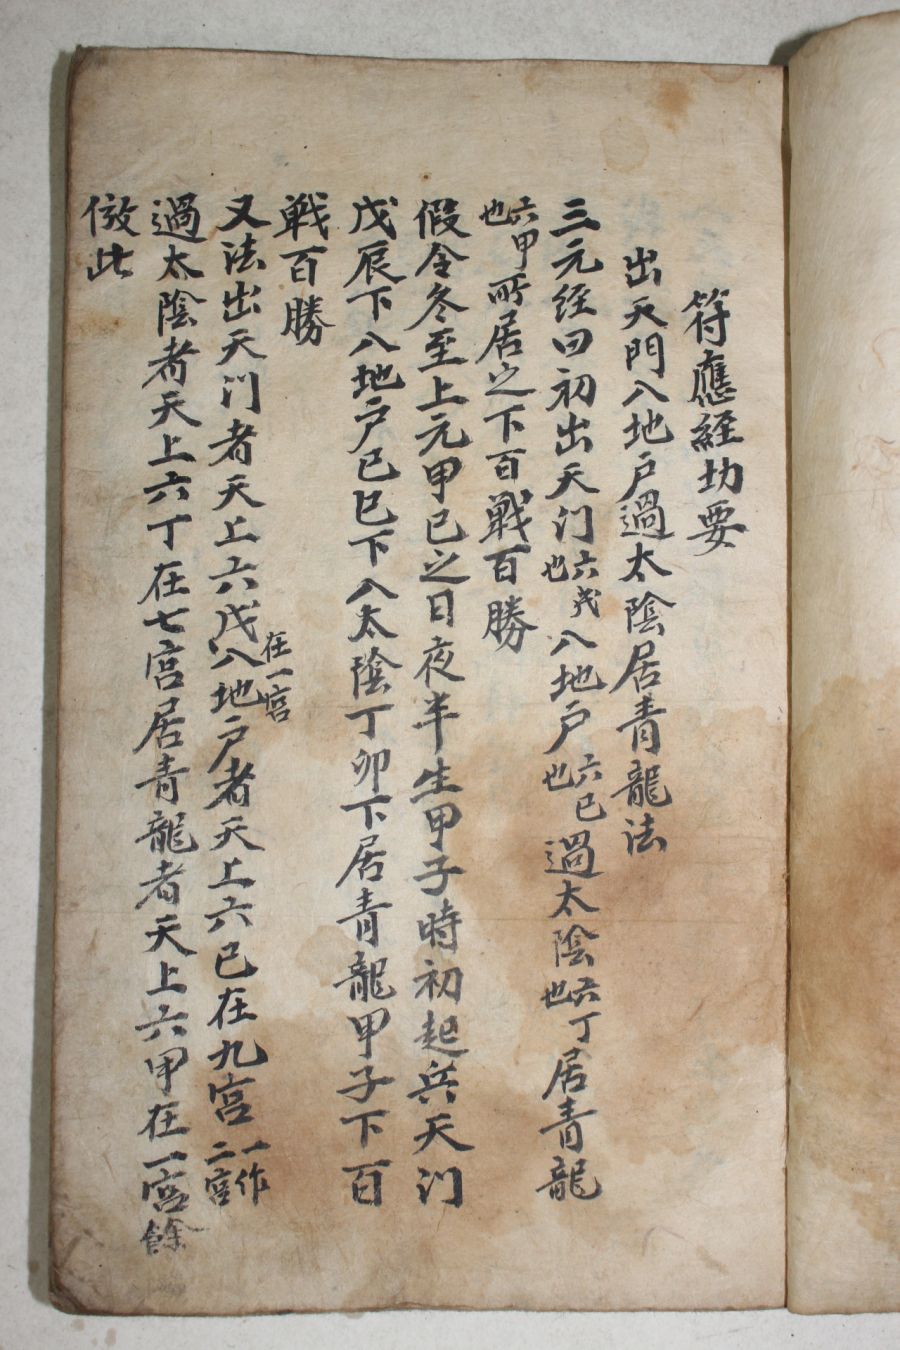 符應経切要
出天門入地戶過太陰居青龍法
三元経曰初出天门六戊也入地戶六己也過太陰六丁也居青龍
六甲也所居之下百戦百勝
假令冬至上元甲己之日夜半生甲子時初起兵天门
戊辰下入地戶己巳下入太陰丁卯下居青龍甲子下百
戦百勝
又法出天门者天上六戊在一宮入地戶者天上六己在九宮一作二宮
過太陰者天上六丁在七宮居青龍者天上六甲在一宮餘
倣此